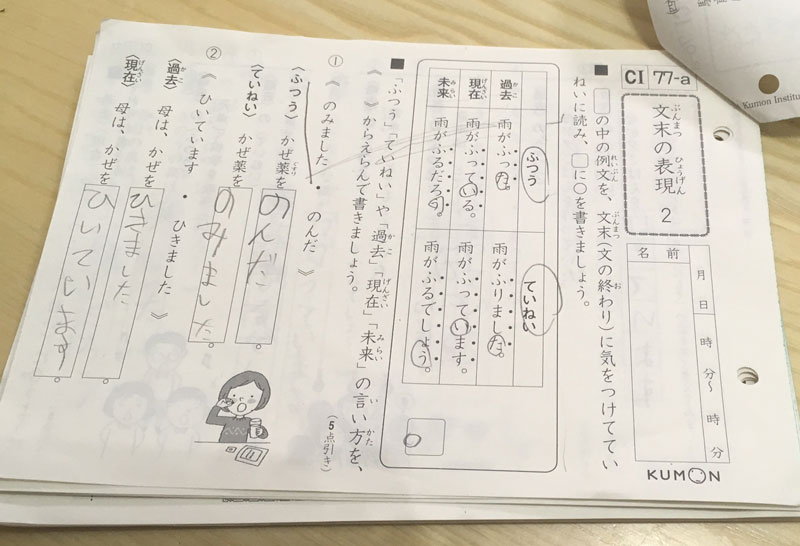 CI 77-a
文末の表現 2
ぶんまつ ひょうげん
名前
月 日 時 分〜 時 分
KUMON
Kumon Institu
■ □の中の例文を、文末(文の終わり)に気をつけてていねいに読み、□に○を書きましょう。
ふつう ていねい
過去 雨がふった。 雨がふりました。
現在 雨がふっている。 雨がふっています。
未来 雨がふるだろう。 雨がふるでしょう。
■ 「ふつう」「ていねい」や「過去」「現在」「未来」の言い方を、《 》からえらんで書きましょう。
(5点引き)
① 《 のみました ・ のんだ 》
〈ふつう〉 かぜ薬を のんだ。
〈ていねい〉 かぜ薬を のみました。
② 《 ひいています ・ ひきました 》
〈過去〉 母は、かぜを ひきました。
〈現在〉 母は、かぜを ひいています。